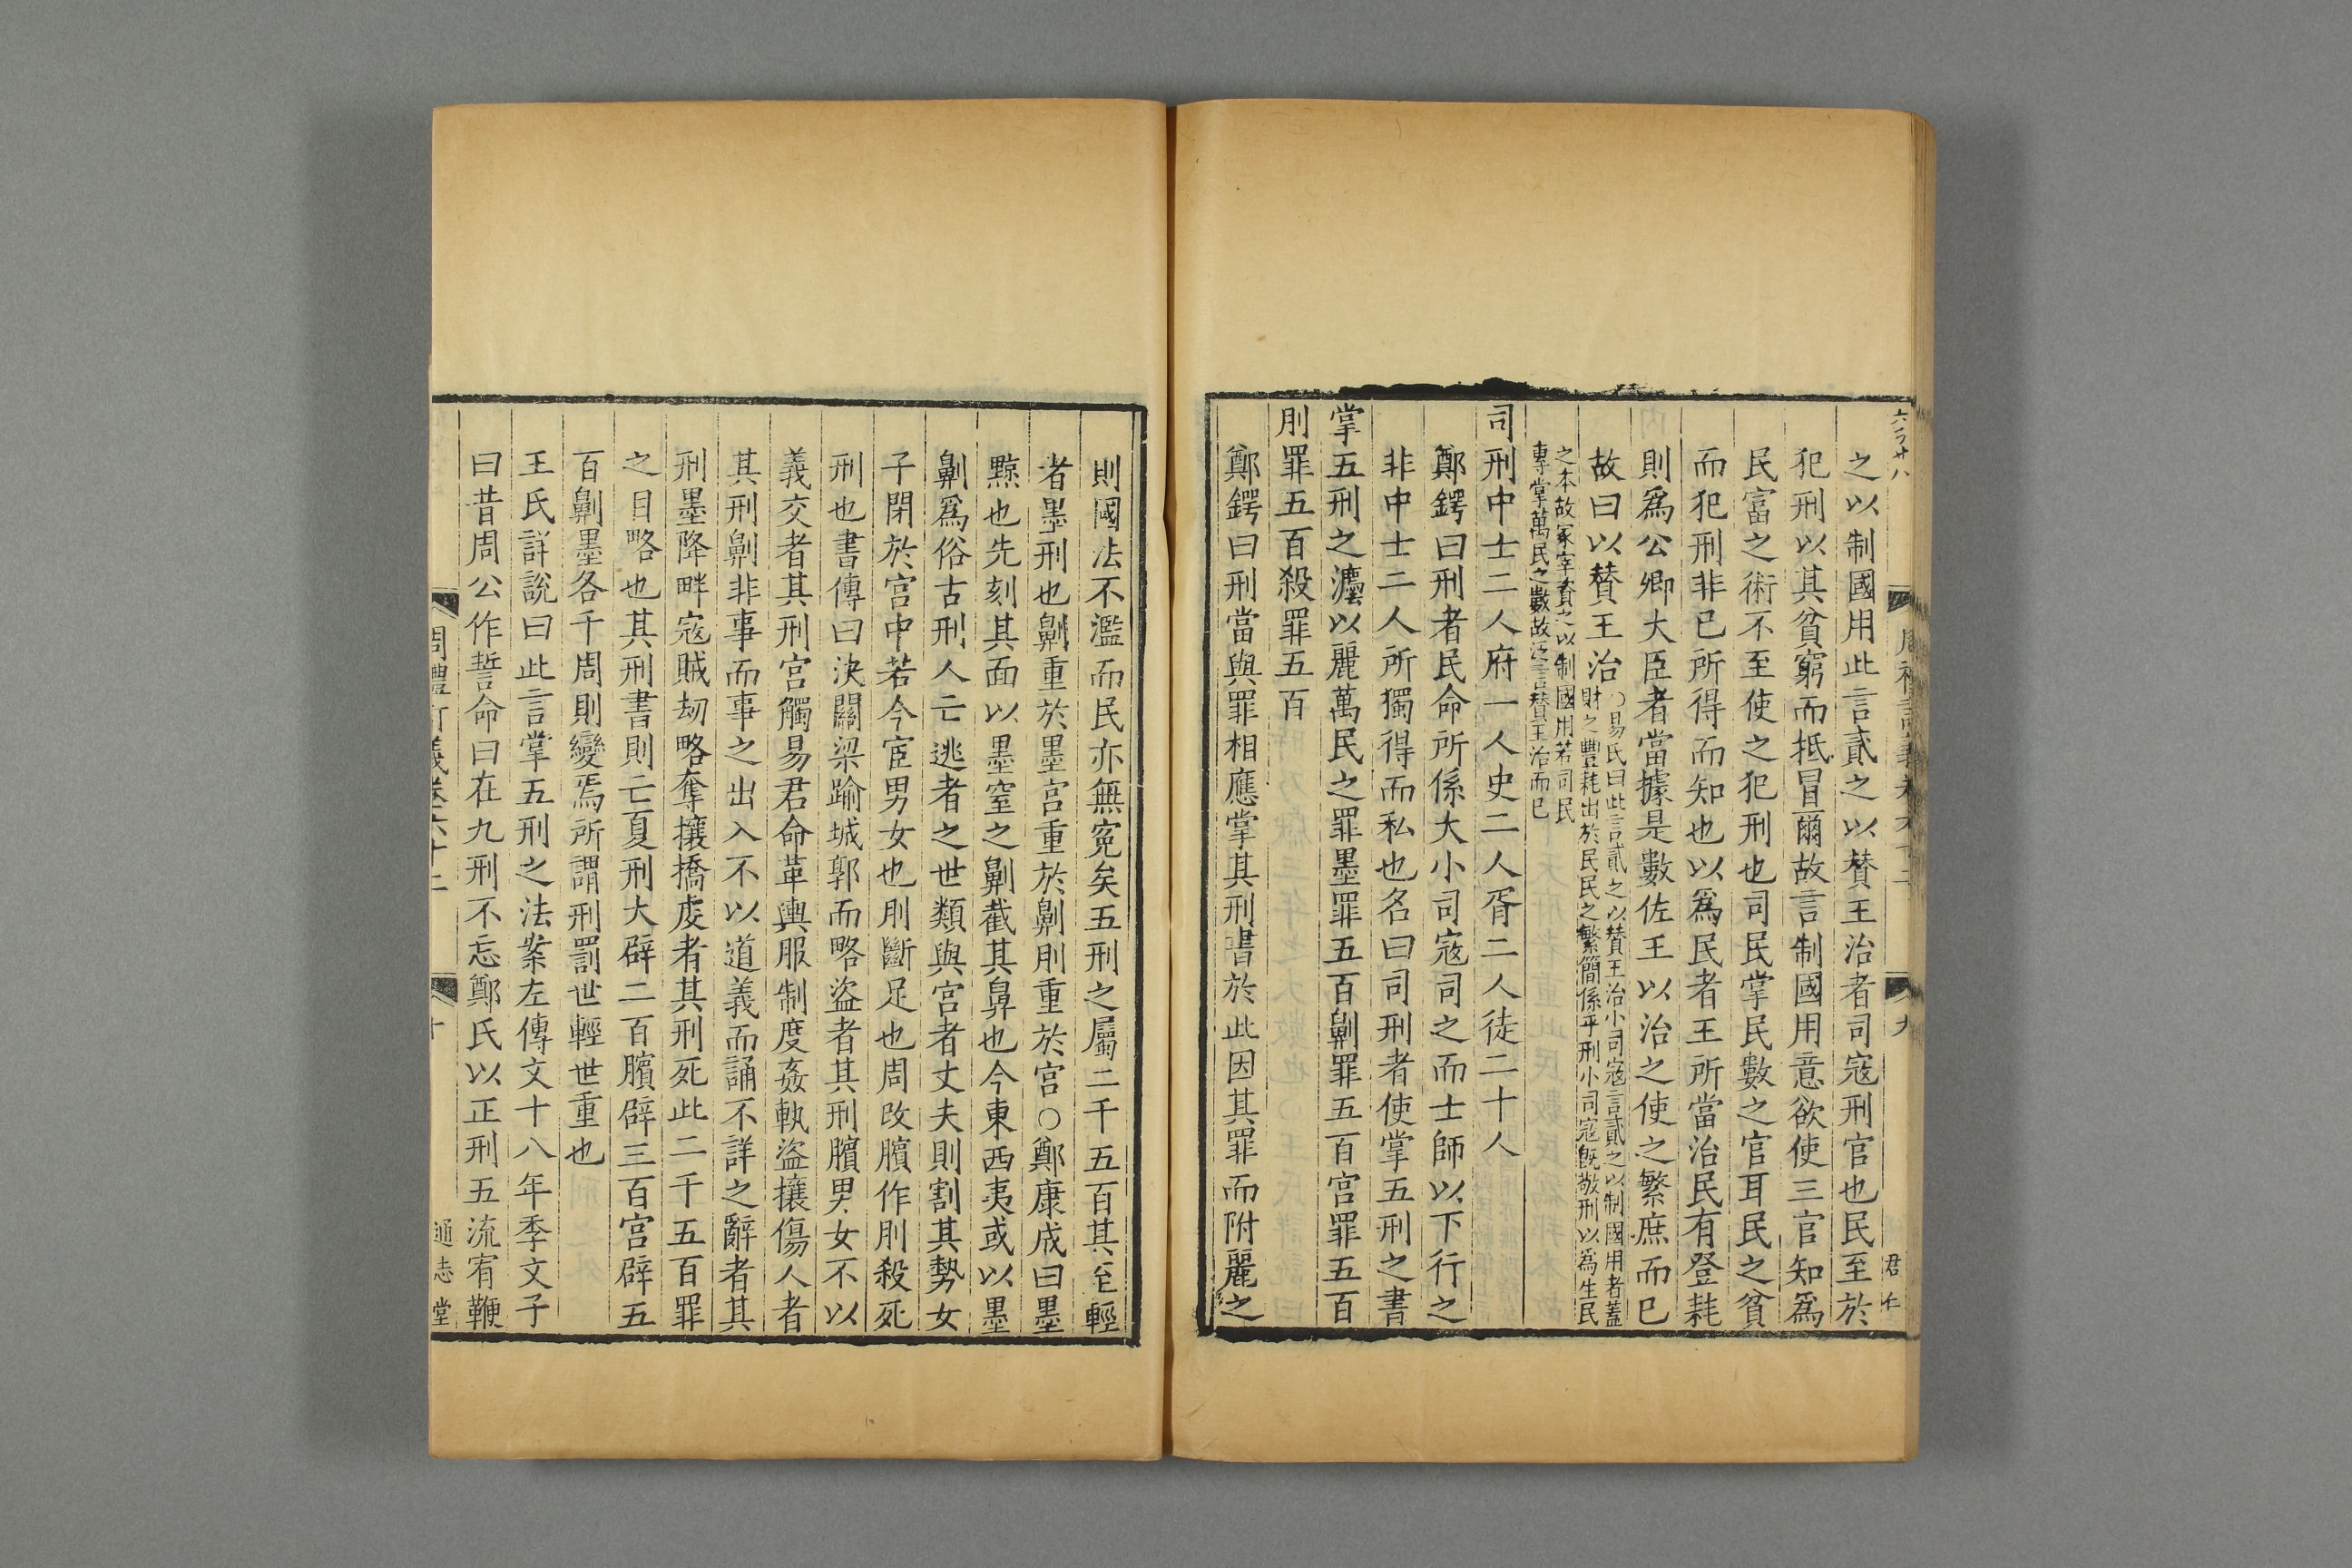 之以制國用此言貳之以賛王治者司寇刑官也民至於
犯刑以其貧窮而抵冒爾故言制國用意欲使三官知爲
民富之術不至使之犯刑也司民掌民數之官耳民之貧
而犯刑非已所得而知也以爲民者王所當治民有登耗
則爲公卿大臣者當據是數佐王以治之使之繁庶而已
故曰以賛王治
○易氏曰此言貳之以賛王治小司寇言貳之以制國用者蓋
財之豐耗出於民民之繁簡係乎刑小司寇旣敬刑以爲生民
之本故冢宰貳之以制國用若司民
專掌萬民之數故泛言賛王治而已
司刑中士二人府一人史二人胥二人徒二十人
鄭鍔曰刑者民命所係大小司寇司之而士師以下行之
非中士二人所獨得而私也名曰司刑者使掌五刑之書
掌五刑之灋以麗萬民之罪墨罪五百劓罪五百宮罪五百
刖罪五百殺罪五百
鄭鍔曰刑當與罪相應掌其刑書於此因其罪而附麗之
則國法不濫而民亦無寃矣五刑之屬二千五百其至輕
者墨刑也劓重於墨宮重於劓刖重於宮○鄭康成曰墨
黥也先刻其面以墨窒之劓截其鼻也今東西夷或以墨
劓爲俗古刑人亡逃者之世類與宮者丈夫則割其勢女
子閉於宮中若今宦男女也刖斷足也周改臏作刖殺死
刑也書傳曰決關梁踰城郭而略盜者其刑臏男女不以
義交者其刑宮觸易君命革輿服制度姦軌盜攘傷人者
其刑劓非事而事之出入不以道義而誦不詳之辭者其
刑墨降畔寇賊刼略奪攘撟虔者其刑死此二千五百罪
之目略也其刑書則亡夏刑大辟二百臏辟三百宮辟五
百劓墨各千周則變焉所謂刑罰世輕世重也
王氏詳說曰此言掌五刑之法案左傳文十八年季文子
曰昔周公作誓命曰在九刑不忘鄭氏以正刑五流宥鞭
周禮訂義卷六十二
十
通志堂